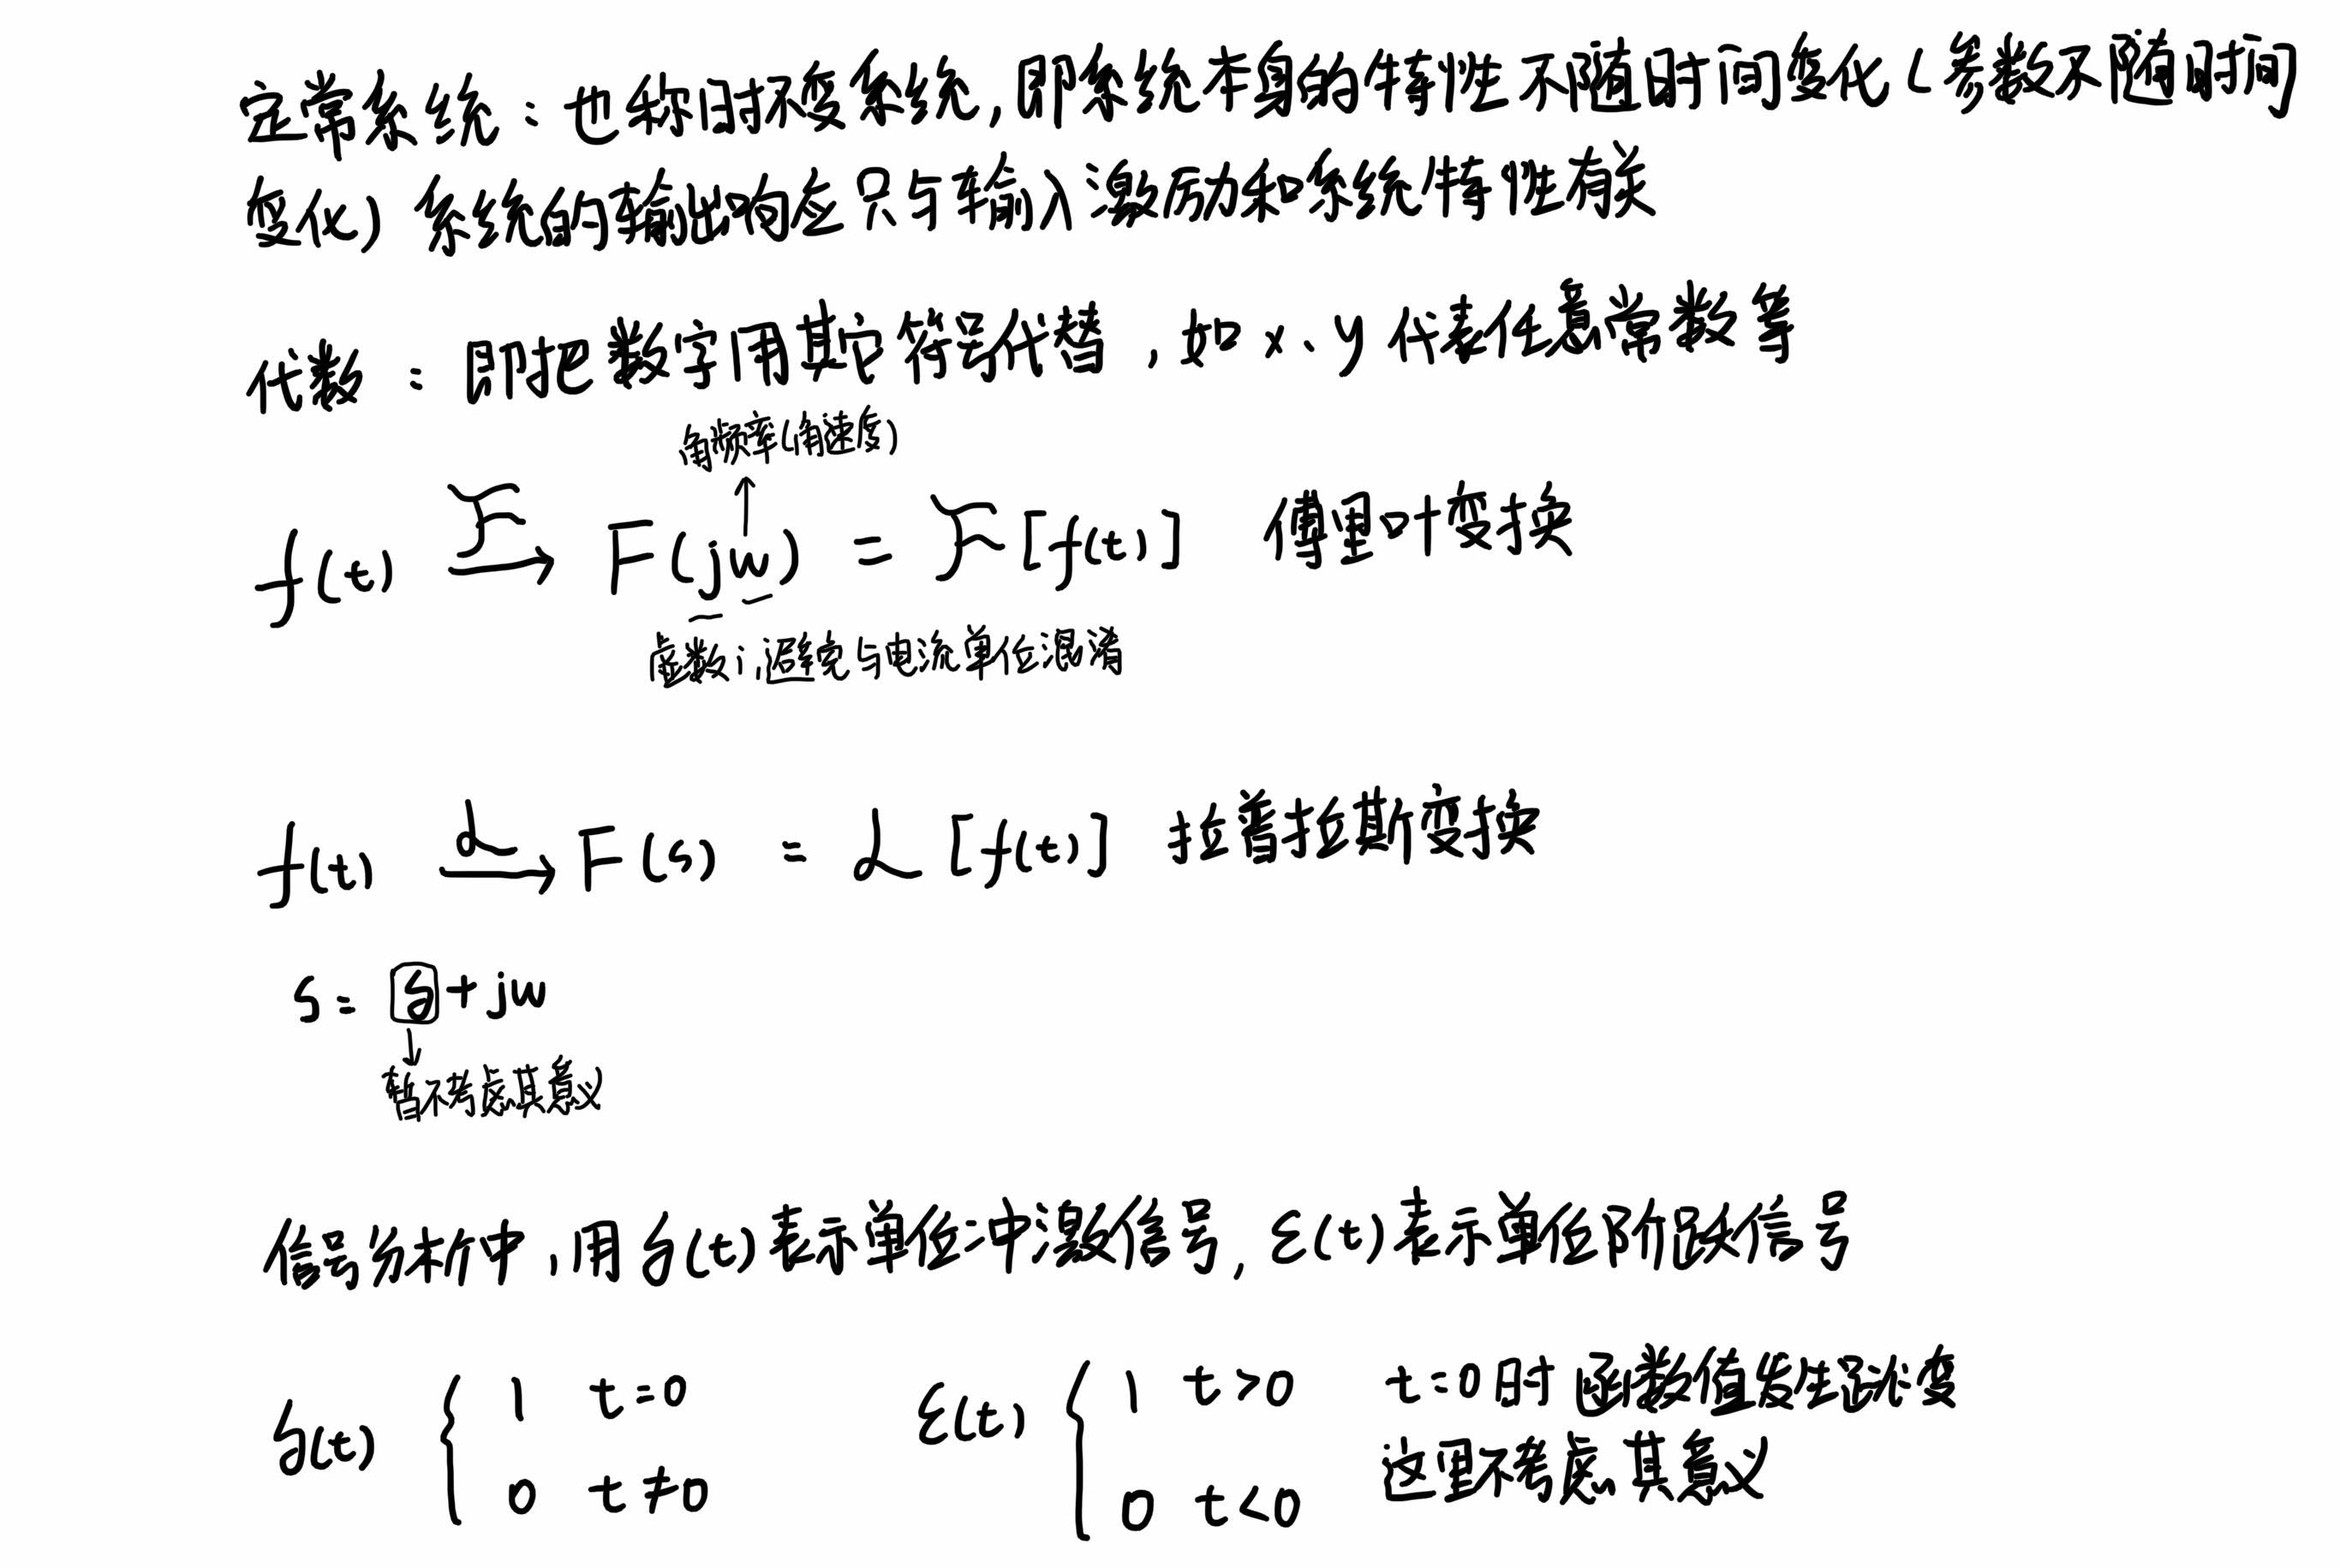 定常系统：也称时不变系统,即系统本身的特性不随时间变化(参数不随时间
变化) 系统的输出响应只与输入激励和系统特性有关
代数：即把数字用其它符号代替，如x、y代表任意常数等
角频率(角速度)
f(t) ℱ→ F(jw) = ℱ[f(t)] 傅里叶变换
虚数i,避免与电流单位混淆
f(t) ℒ→ F(s) = ℒ[f(t)] 拉普拉斯变换
s = δ + jw
↓
暂不考虑其意义
信号分析中,用δ(t)表示单位冲激信号, ε(t)表示单位阶跃信号
δ(t) { 1 t=0
0 t≠0
ε(t) { 1 t>0
0 t<0
t=0时函数值发生跳变
这里不考虑其意义